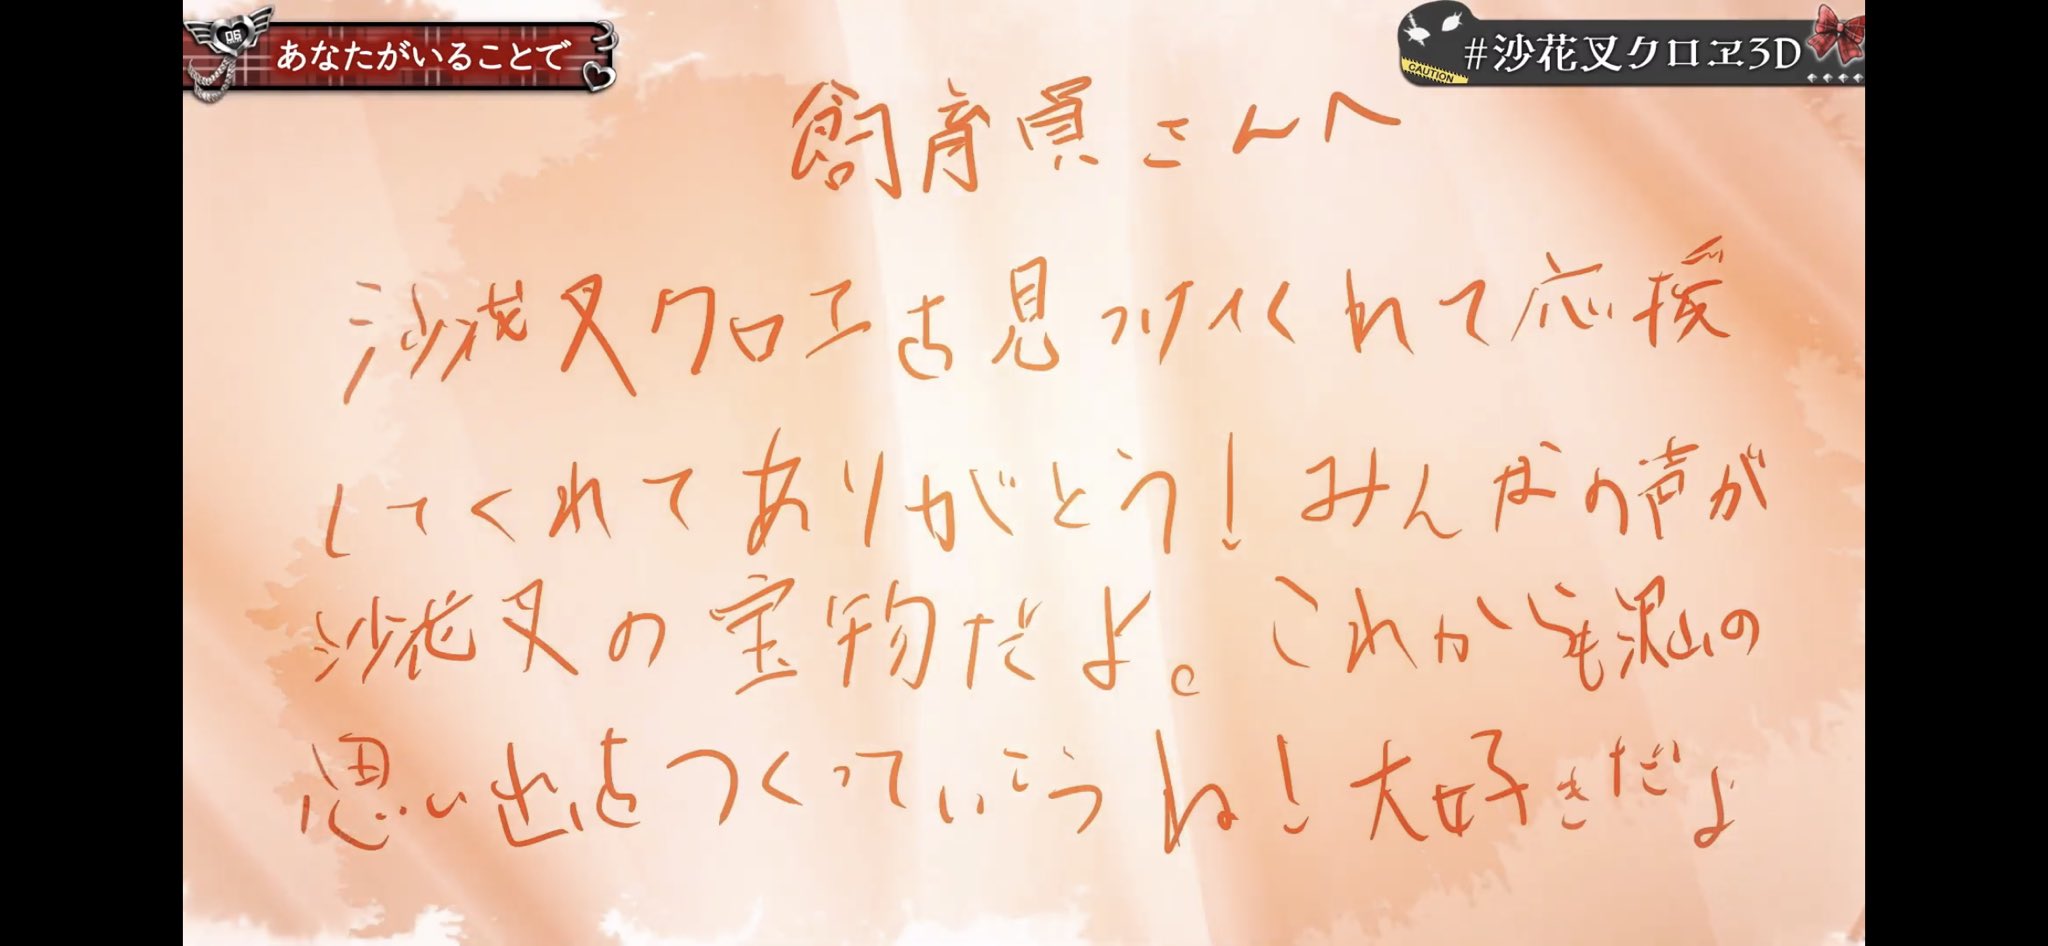 06
あなたがいることで
CAUTION
#沙花叉クロヱ3D
飼育員さんへ
沙花叉クロヱを見つけてくれて応援
してくれてありがとう!みんなの声が
沙花叉の宝物だよ。これからも沢山の
思い出をつくっていこうね!大好きだよ